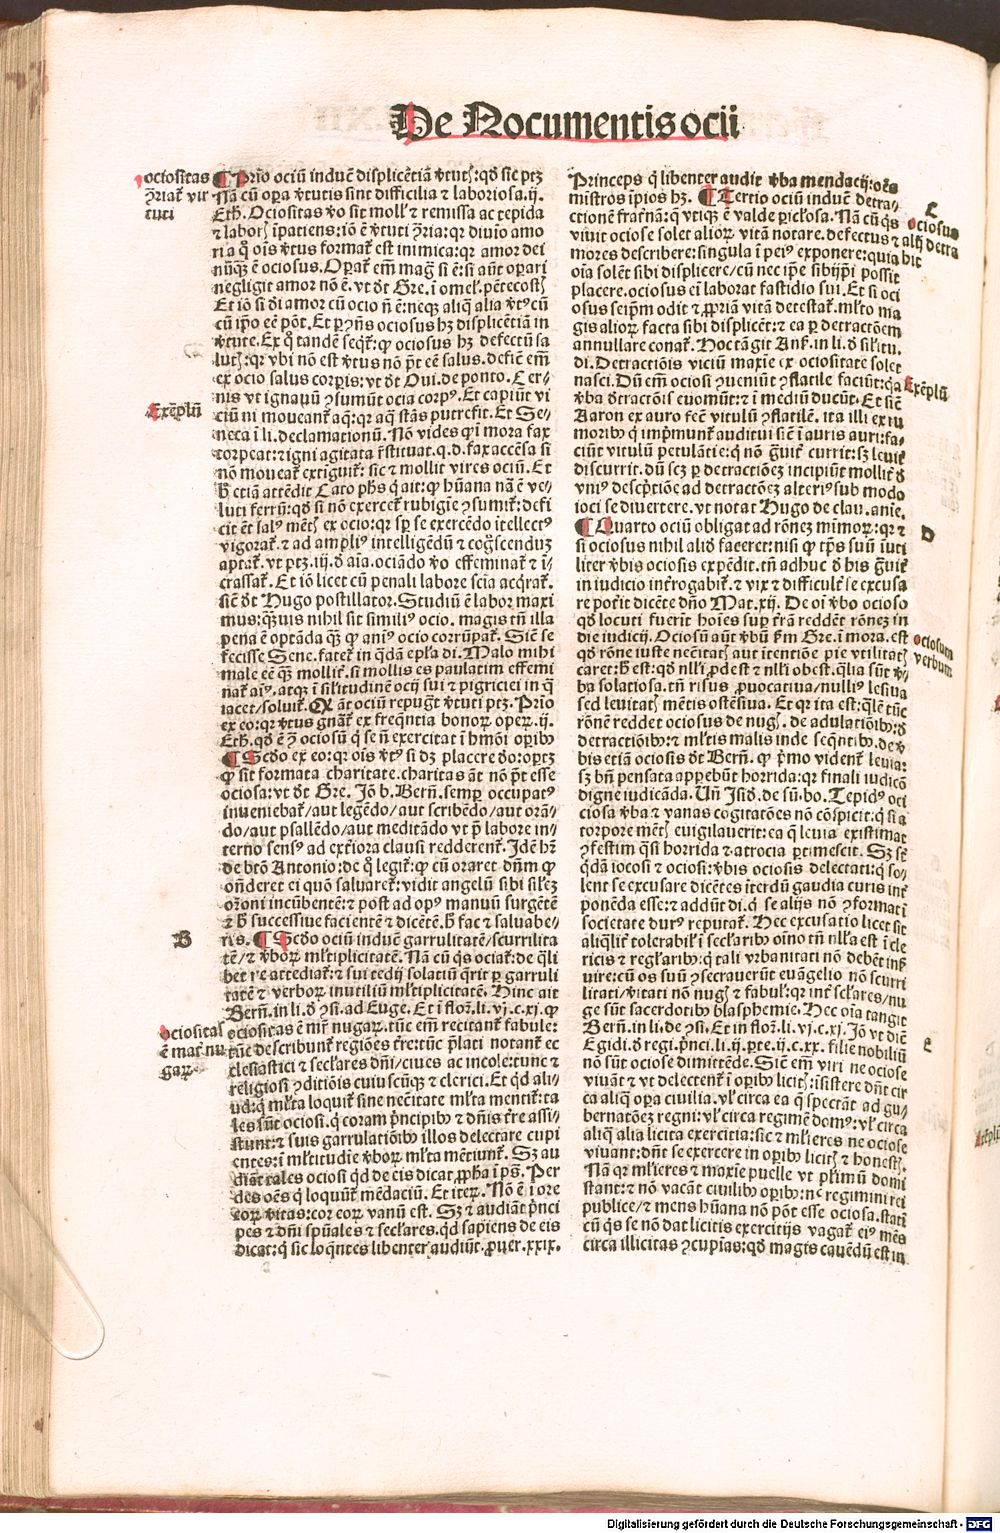 De Nocumentis ocii
ociositas
ꝯriat᷑ vir
tuti
¶ Prīo ociū induc̄ displicētiā ꝟtutꝭ: qḋ sic ptꝫ
Nā cū oꝑa ꝟtutis sint difficilia ⁊ laboriosa. ij.
Eth̄. Ociositas ꝟo sit moll' ⁊ remissa ac tepida
⁊ laborꝭ īpatiens: iō ē ꝟtuti ꝯria: qꝛ diuīo amo
ri a q̊ oīs ꝟtus format᷑ est inimica: qꝛ amor dei
nūqꝫ ē ociosus. Oꝑat᷑ em̄ magͣ si ē: si aūt oꝑari
negligit amor nō ē. vt ḋt Gre. ī omel'. pētecostꝭ
Et iō si di amor cū ocio nō ē: neqꝫ aliq̄ alia ꝟtꝰ cū
cū ip̄o eē pōt. Et ꝑ ꝯn̄s ociosus hꝫ displicētiā in
ꝟtute. Ex q̊ tandē seqt᷑: ꝙ ociosus hꝫ defectū sa
lutꝭ: qꝛ vbi nō est ꝟtus nō pōt eē salus. defic̄ em̄
ex ocio salus corꝑis: vt ḋt Oui. de ponto. Cer⸗
nis vt ignauū ꝯsumūt ocia corpꝰ. Et capiūt vi
Exēplū
ciū ni moueant᷑ aq̄: qꝛ aq̄ stās putrefit. Et Se⸗
neca ī li. declamationū. Nō vides ꝙ ī mora fax
torpeat: ⁊ igni agitata r̄stituat. q. d. fax accēsa si
nō moueat᷑ extiguit᷑: sic ⁊ mollit vires ociū. Et
h̄ etiā attēdit Cato ph̄s q̇ ait: ꝙ hūana nā ē ve⸗
luti ferrū: qḋ si nō exercet᷑ rubigīe ꝯsumit᷑: defi
cit ēt salꝰ mētꝭ ex ocio: qꝛ sꝑ se exercēdo ītellectꝰ
vigorat᷑. ⁊ ad ampliꝰ intelligēdū ⁊ cog̊scendū
aptat᷑. vt ptꝫ. iij. ḋ aīa. ociādo ꝟo effeminat᷑ ⁊ ī⸗
crassat᷑. Et iō licet cū penali labore scīa acq̇rat᷑.
sic̄ ḋt Hugo postillator. Studiū ē labor maxi
mus: qͣꝫuis nihil sit similiꝰ ocio. magis tn̄ illa
pena ē optāda qͣꝫ ꝙ aniꝰ ocio corrūpat᷑. Sic̄ se
fecisse Sene. fatet᷑ in q̇dā epl̄a di. Malo mihi
male eē qͣꝫ mollit᷑. si mollis es paulatim effemi
nat᷑ aīꝰ. atqꝫ ī sil'itudinē ocij sui ⁊ pigriciei in q̊
iacet/soluit᷑. Qꝙ āt ocium repugt᷑ ꝟtuti ptꝫ. Prīo
ex eo: qꝛ ꝟtus gn̄at᷑ ex freq̄ntia bonoꝝ oꝑeꝝ. ij.
Eth̄. qḋ ē ꝯ ociosū q̇ se n̄ exercitat ī hm̄oi oꝑibꝰ
¶ Scḋo ex eo: qꝛ oīs ꝟtꝰ si dꝫ placere ḋo: oꝑtꝫ
ꝙ sit formata charitate. charitas āt nō pōt esse
ociosa: vt ḋt Gre. Iō b. Bern̄. semꝑ occupatꝰ
inueniebat᷑/aut legēdo/aut scribēdo/aut orā⸗
do/aut psallēdo/aut meditādo vt p̄ labore in⸗
terno sensꝰ ad ext̄iora clausi redderent᷑. Idē hꝫ
de btō Antonio: de q̊ legit᷑: ꝙ cū oraret dn̄m ꝙ
on̄deret ei quō saluaret᷑: vidit angelū sibi sil'eꝫ
or̄oni incūbentē: ⁊ post ad opꝰ manuū surgētē
⁊ h̄ successiue facientē ⁊ dicētē. h̄ fac ⁊ saluabe⸗
B
ris. ¶ Scḋo ociū induc̄ garrulitatē/scurrilita
tē/⁊ ꝟboꝝ ml̓tiplicitatē. Nā cū qs ociat᷑: de q̊li
bet re attediat᷑: ⁊ sui tedij solatiū q̄rit ꝑ garruli
tatē ⁊ verboꝝ inutiliū ml̓tiplicitatē. Hinc ait
Bern̄. in li. ḋ ꝯsi. ad Euge. Et ī floꝛ̄. li. vj. c. xj. ꝙ
ociositas
ē mat᷑ nu
gaꝝ.
ociositas ē mr̄ nugaꝝ. tūc em̄ recitant᷑ fabule:
tūc describunt᷑ regiōes tr̄e: tūc p̄lati notant᷑ ec
clesiastici ⁊ secl̄ares dn̄i/ciues ac incole: tunc ⁊
religiosi ꝯditiōis cuiuscūqꝫ ⁊ clerici. Et qḋ ali⸗
ud: q̇ ml̓ta loquit᷑ sine necītate ml̓ta mentit᷑: ta
les sūt ociosi. q̇ coram p̄ncipibꝰ ⁊ dn̄is tr̄e assi⸗
stunt: ⁊ suis garrulatiōibꝰ illos delectare cupi
entes: ī ml̓titudīe ꝟboꝝ ml̓ta mētiunt᷑. Sꝫ au
diāt tales ociosi qḋ de eis dicat ꝓph̄a ī ps̄. Per
des oēs q̇ loquūt᷑ mēdaciū. Et iteꝝ. Nō ē ī ore
eoꝝ ꝟitas: cor eoꝝ vanū est. Sꝫ ⁊ audiāt p̄nci
pes ⁊ dn̄i sp̄uales ⁊ secl̄ares. qḋ sapiens de eis
dicat: q̇ sic loq̄ntes libenter audiūt. ꝓuer. xxix.
Princeps q̇ libenter audit ꝟba mendacij: oēs
mistros īpios hꝫ. ¶ Tertio ociū induc̄ detra⸗
C
ociosus
alij detra
hit
ctionē frat̄nā: q̄ vtiqꝫ ē valde ꝑicl̓osa. Nā cū qs
viuit ociose solet alioꝝ vitā notare. defectus ⁊
mores describere: singula ī peiꝰ exponere: quia
oīa solēt sibi displicere/cū nec ip̄e sibijp̄i possit
placere. ociosus ei laborat fastidio sui. Et si oci
osus seip̄m odit ⁊ ꝓpriā vitā detestat᷑. ml̓to ma
gis alioꝝ facta sibi displicēt: ⁊ ea ꝑ detractōem
annullare conat᷑. Hoc tāgit Ans̄. in li. ḋ sil'itu.
di. Detractiōis viciū maxīe ex ociositate solet
Exēplū
nasci. Dū em̄ ociosi ꝯueniūt ꝯflatile faciūt: qꝛ
ꝟba ḋtractōis euomūt: ⁊ ī mediū ducūt. Et sic̄
Aaron ex auro fecē vitulū ꝯflatilē. ita illi ex ru
moribꝰ q̇ imp̄munt᷑ auditui sic̄ ī auris auri: fa⸗
ciūt vitulū petulātie: q̇ nō gͣuit᷑ currit: sꝫ leuit᷑
discurrit. dū scꝫ ꝑ detractiōeꝫ incipiūt mollit᷑ ḋ
vniꝰ descp̄tiōe ad detractiōeꝫ alteriꝰ sub modo
ioci se diuertere. vt notat Hugo de clau. anīe.
D
¶ Quarto ociū obligat ad rōneꝫ mīmoꝝ: qꝛ ⁊
si ociosus nihil aliḋ faceret: nisi ꝙ tp̄s suū īuti
liter ꝟbis ociosis expēdit. tn̄ adhuc ḋ his gͣuit᷑
in iudicio int̄rogabit᷑. ⁊ vix ⁊ difficult᷑ se excusa
re poīt dicēte dn̄o Mat. xij. De oī ꝟbo ocioso
qḋ locuti fuerit hoīes suꝑ tr̄ā reddēt rōneꝫ in
die iudicij. Ociosū aūt ꝟbū ẜm Gre. ī mora. est
ociosum
verbum
qḋ rōne iuste necītatꝭ aut ītentiōe pie vtilitatꝭ
caret: h̄ est: qḋ nll̓i ꝓdest ⁊ nll̓i obest. q̄lia sūt ꝟ⸗
ba solatiosa. tn̄ risus ꝓuocatiua/nulliꝰ lesiua
sed leuitatꝭ mētis ostēsiua. Et qꝛ ita est: q̄lē tūc
rōnē reddet ociosus de nugꝭ. de adulatiōibꝰ: ḋ
detractiōibꝰ: ⁊ ml̓tis malis inde seq̄ntibꝰ. de ꝟ
bis etiā ociosis ḋt Bern̄. ꝙ p̄mo vident᷑ leuia:
sꝫ bn̄ pensata apꝑebūt horrida: qꝛ finali iudicō
digne iudicāda. Un̄ Isid. de sū. bo. Tepidꝰ oci
ciosa ꝟba ⁊ vanas cogitatōes nō cōspicit: q̇ si a
torpore mētꝭ euigilauerit: ea q̄ leuia existimat
ꝯfestim q̄si horrida ⁊ atrocia ꝑtimescit. Sꝫ st̄
q̇dā iocosi ⁊ ociosi: ꝟbis ociosis delectati: q̇ so⸗
lent se excusare dicētes īterdū gaudia curis int̄
ponēda esse: ⁊ addūt di. q̇ se alijs nō ꝯformat ī
societate durꝰ reputat᷑. Hec excusatio licet sit
aliq̄lit᷑ tolerabil' ī secl̄aribꝰ oīno tn̄ nll̓a est ī cle
ricis ⁊ regl̓aribꝰ: q̇ tali vrbanitati nō debēt īẜ
uire: cū os suū ꝯsecrauerūt euāgelio nō scurri
litati/ꝟitati nō nugꝭ ⁊ fabulꝭ: qꝛ int᷑ scl̄ares/nu
ge sūt sacerdotibꝰ blasphemie. Hec oīa tangit
E
Bern̄. in li. de ꝯsi. Et in floꝛ̄. li. vj. c. xj. Iō vt dic̄
Egidi. ḋ regi. p̄nci. li. ij. ꝑte. ij. c. xx. filie nobiliū
nō sūt ociose dimittēde. Sic̄ em̄ viri ne ociose
viuāt ⁊ vt delectent᷑ ī oꝑibꝰ licitꝭ: īsistere dn̄t cir
ca aliq̄ oꝑa ciuilia. vl' circa ea q̄ spectāt ad gu⸗
bernatōeꝫ regni: vl' circa regimē domꝰ: vl' circa
Exēplū
aliq̄ alia licita exercitia: sic ⁊ ml̓ieres ne ociose
viuant: dn̄t se exercere in oꝑibꝰ licitꝭ ⁊ honestꝭ.
Nā qꝛ ml̓ieres ⁊ maxīe puelle vt plimū domi
stant: ⁊ nō vacāt ciuilibꝰ oꝑibꝰ: nec regimini rei
publice/⁊ mens hūana nō pōt esse ociosa. stati
cū q̄s se nō dat licitis exercitijs vagat᷑ eiꝰ mēs
circa illicitas ꝯcupīas: qḋ magis cauēdū est in